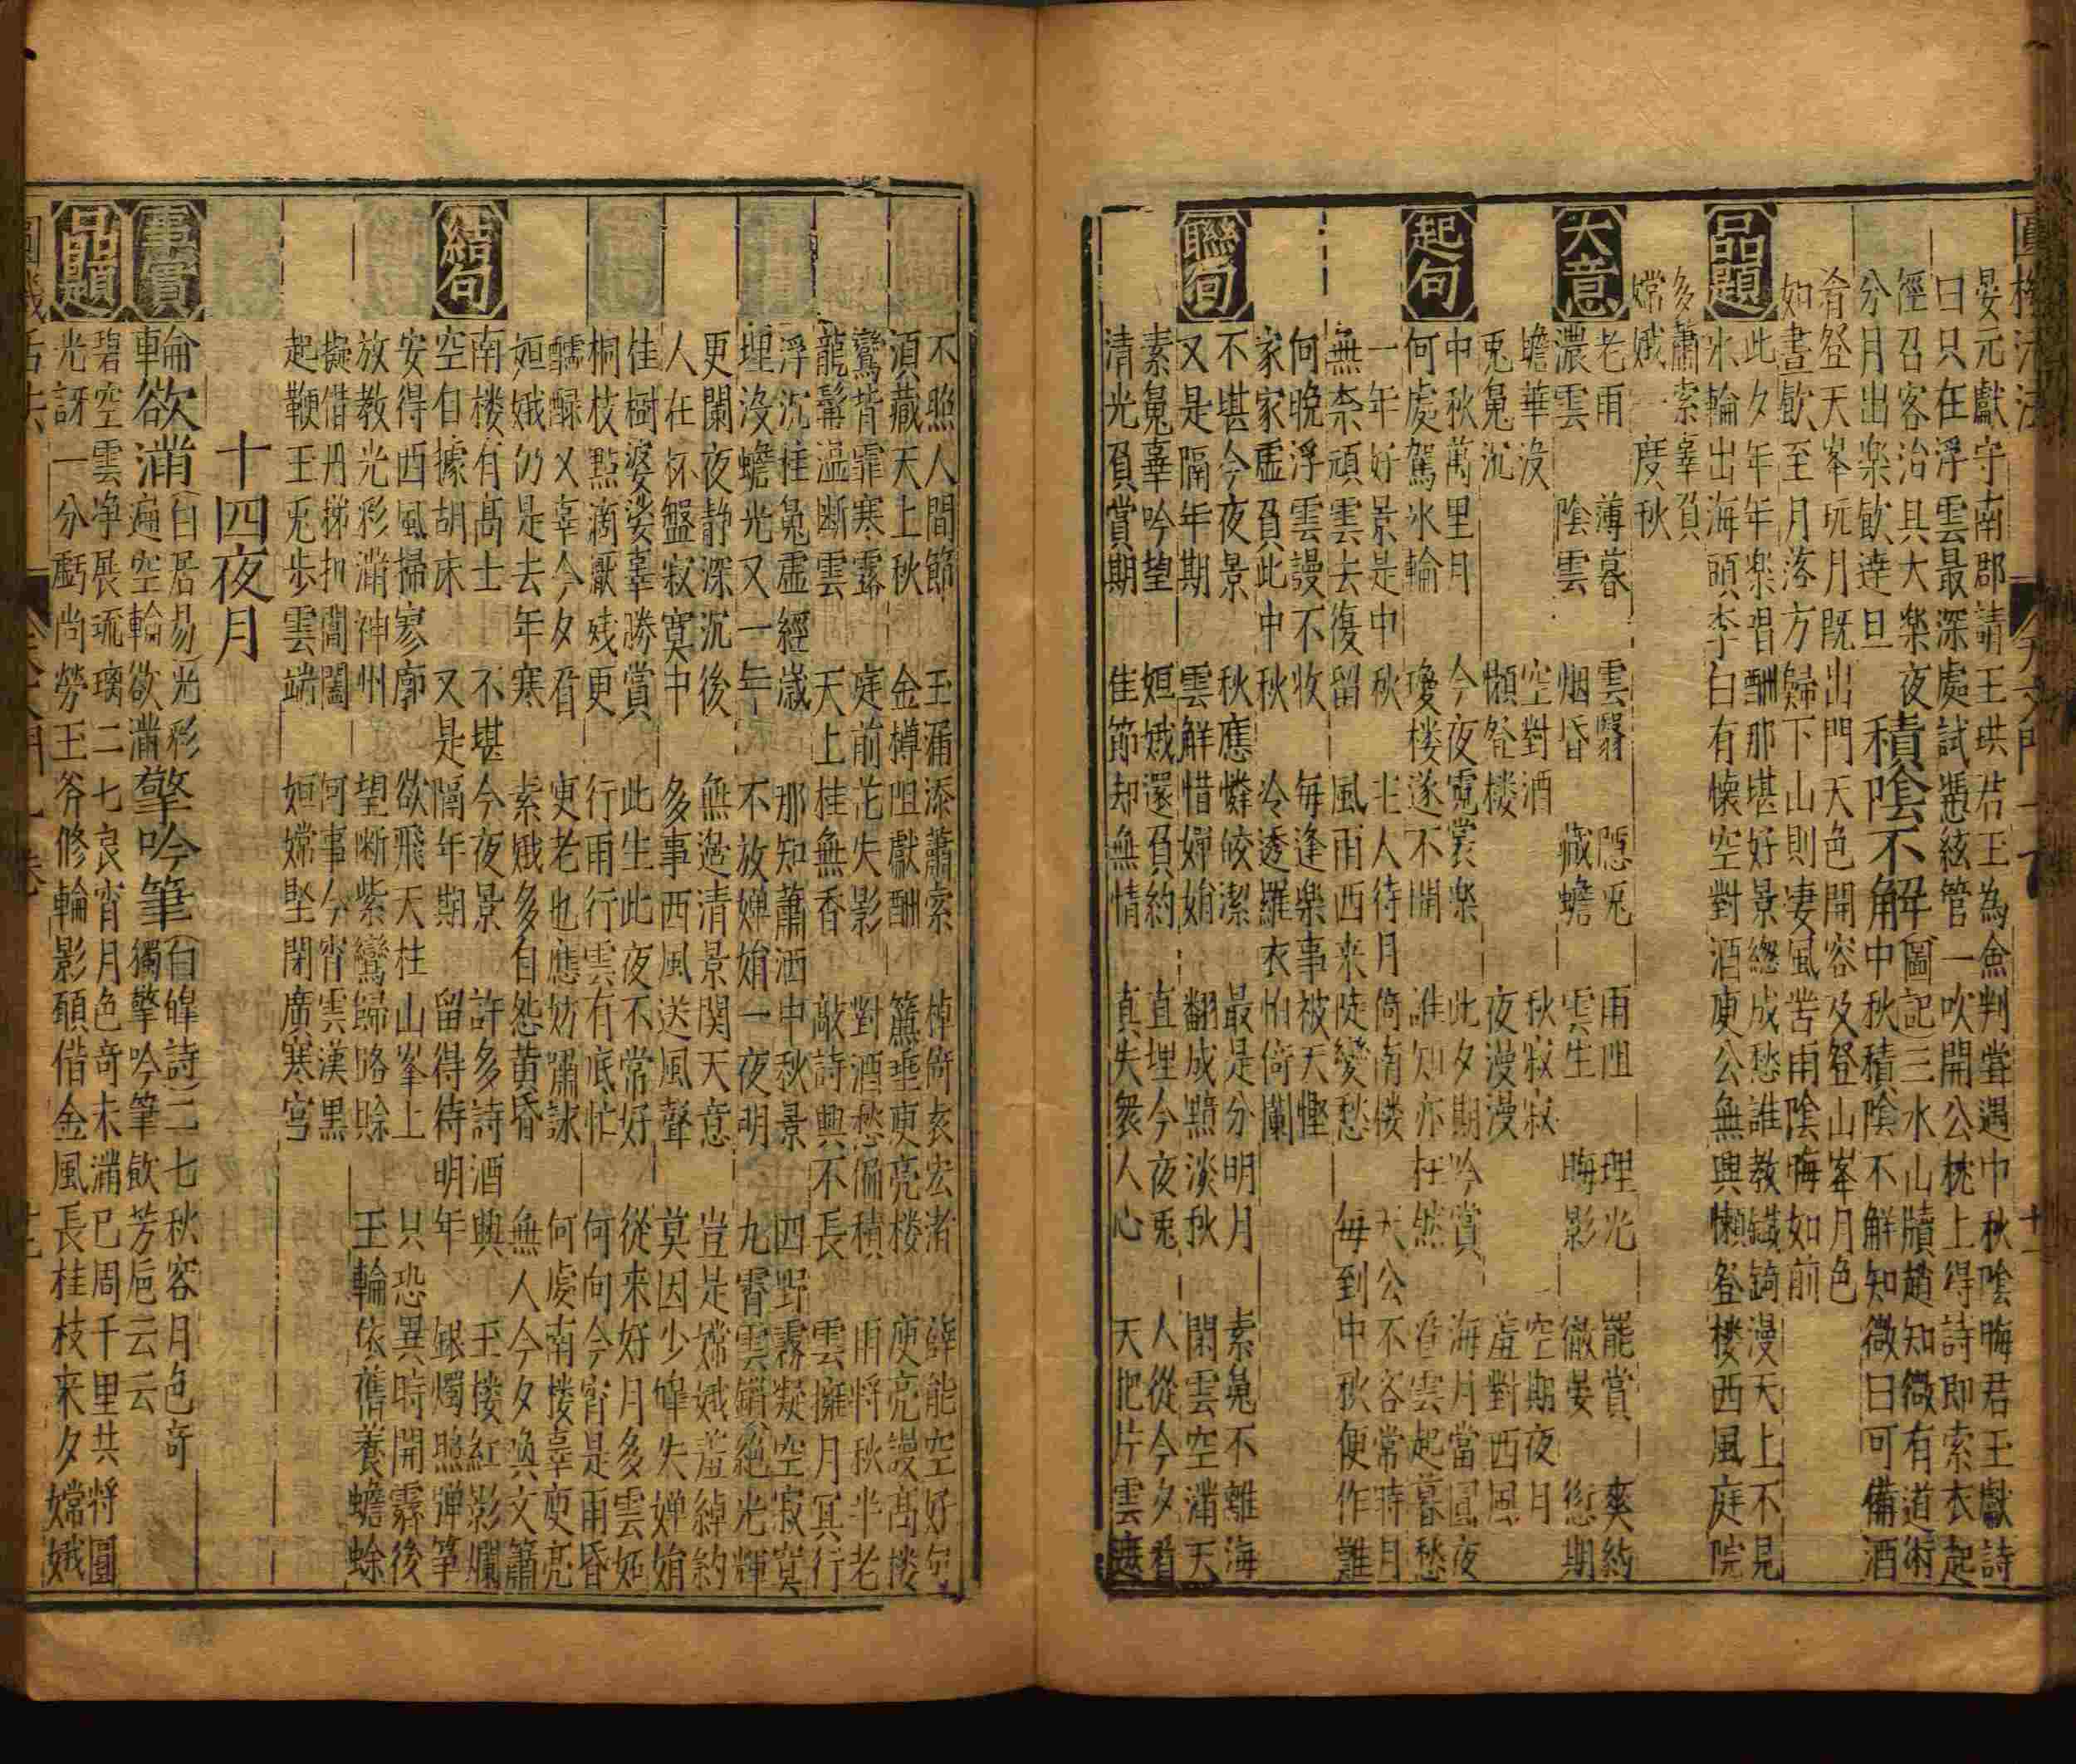 晏元獻守南郡請王珙君王為僉判嘗遇中秋陰晦君王獻詩
曰只在浮雲最深處試憑絃管一吹開公枕上得詩即索衣起
徑召客治具大樂夜
積陰不解
圖記三水山牘趙知微有道術
分月出樂飲達旦
中秋積陰不解知微曰可備酒
肴登天峯玩月既出門天色開容及登山峯月色
如晝飲至月落方歸下山則淒風苦雨陰晦如前
品題
此夕年年樂習酬那堪好景總成愁誰教鐵鎖漫天上不見
氷輪出海頭李白有懷空對酒庾公無興懶登楼西風庭院
多蕭索辜負
嫦娥一度秋
大意
老雨 薄暮 雲翳 隱兎 雨阻 理光 罷賞 爽約
濃雲 陰雲 烟昏 藏蟾 雲生 晦影 徹宴 愆期
蟾華没 空對酒 秋寂寂 空期夜月
兎魄沉 懶登楼 夜漫漫 羞對西風
起句
中秋萬里月 今夜霓裳樂 此夕期吟賞 海月當圓夜
何處駕氷輪 瓊楼遂不開 誰知亦枉然 雲起暮愁
一年好景是中秋 主人待月倚南楼 天公不容常時月
無奈頑雲去復留 風雨西来陡變愁 每到中秋便作難
何晚浮雲謾不收 每逢樂事被天慳
家家虛負此中秋 冷透羅衣怕倚闌
聯句
不堪今夜景 秋應憐皎潔 最是分明月 素魄不離海
又是隔年期 雲解惜嬋娟 翻成黯淡秋 閑雲空滿天
素魄辜吟望 姮娥還負約 直埋今夜兎 人從今夕看
清光負賞期 佳節却無情 真失衆人心 天把片雲遮
不照人間節 玉漏添蕭索 棹倚袁宏渚 薛能空好句
須藏天上秋 金樽阻獻酬 簾垂庾亮楼 庾亮謾高楼
鸞背霏寒露 庭前花失影 對酒愁偏積 雨将秋半老
龍髯溫断雲 天上桂無香 敲詩興不長 雲擁月冥行
浮沉桂魄虛經歲 那知蕭洒中秋景 四野霧凝空寂寞
埋没蟾光又一年 不放嬋娟一夜明 九霄雲鎖絕光輝
更闌夜静深沉後 無邊清景関天意 豈是嫦娥羞綽約
人在杯盤寂寞中 多事西風送風聲 莫因少皥失嬋娟
佳樹婆娑辜勝賞 此生此夜不常好 從来好月多雲妬
桐枝點滴厭残更 行雨行雲有底忙 何向今宵是雨昏
醽醁又辜今夕看 庾老也應妨嘯詠 何處南楼辜庾亮
姮娥仍是去年寒 素娥多自怨黄昏 無人今夕喚文簫
結句
南楼有高士 不堪今夜景 許多詩酒興 玉楼紅影爛
空自據胡床 又是隔年期 留得待明年 銀燭照彈筝
安得西風掃寥廓 欲飛天柱山峯上 只恐異時開霽後
放教光彩滿神州 望断紫鸞歸路賒 玉輪依舊養蟾蜍
擬借丹梯扣閶闔 何事今宵雲漢黑
起鞭玉兎步雲端 姮嫦堅閉廣寒宫
十四夜月
事實
輪欲滿
白居易光彩
遍空輪欲滿
擎吟筆
白皥詩二七秋容月色奇
獨擎吟筆飲芳巵云云
品題
碧空雲净展琉璃二七良宵月色奇未滿已周千里共将圓
光訝一分虧尚勞玉斧修輪影願借金風長桂枝来夕嫦娥